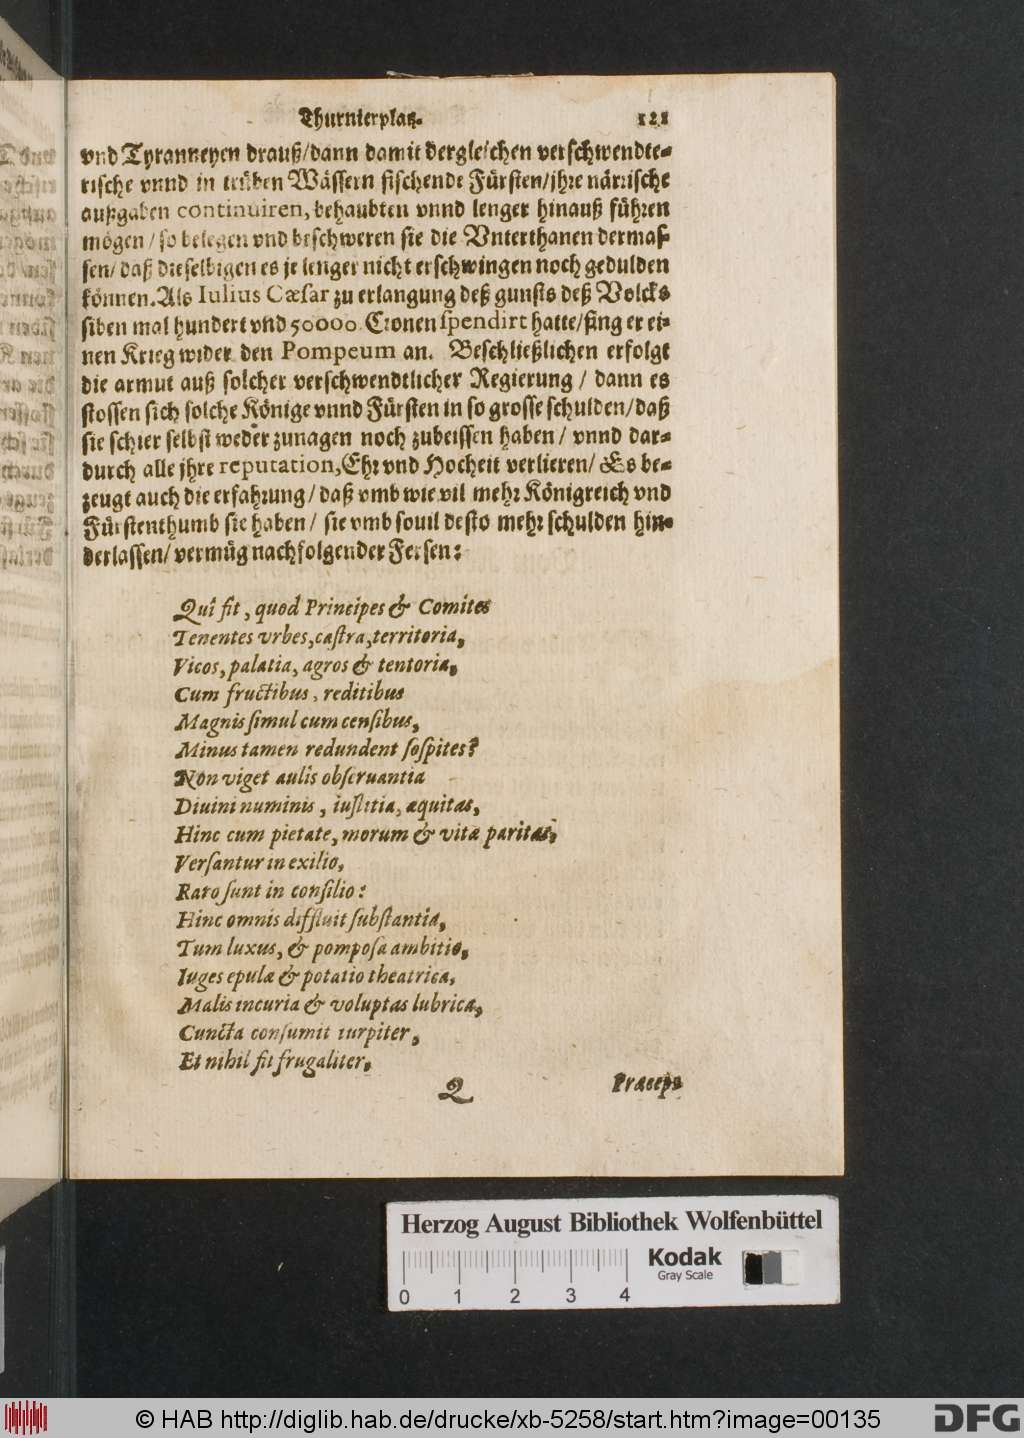 Thurnierplatz. 121
vnd Tyranneyen drauß/dann damit dergleichen verschwendte-
rische vnnd in trüben Wässern fischende Fürsten/jhre närrische
außgaben continuiren, behaubten vnnd lenger hinauß führen
mögen/so belegen vnd beschweren sie die Vnterthanen dermas-
sen/daß dieselbigen es je lenger nicht erschwingen noch gedulden
können. Als Iulius Cæsar zu erlangung deß gunsts deß Volcks
siben mal hundert vnd 50000. Cronen spendirt hatte/fing er ei-
nen Krieg wider den Pompeum an. Beschließlichen erfolgt
die armut auß solcher verschwendtlicher Regierung / dann es
stossen sich solche Könige vnnd Fürsten in so grosse schulden/daß
sie schier selbst weder zunagen noch zubeissen haben/ vnnd dar-
durch alle jhre reputation, Ehr vnd Hocheit verlieren/ Es be-
zeugt auch die erfahrung/daß vmb wie vil mehr Königreich vnd
Fürstenthumb sie haben/ sie vmb souil desto mehr schulden hin-
derlassen/vermüg nachfolgender Fersen:
Qui fit, quod Principes & Comites
Tenentes vrbes, castra, territoria,
Vicos, palatia, agros & tentoria,
Cum fructibus, reditibus
Magnis simul cum censibus,
Minus tamen redundent sospites?
Non viget aulis obseruantia
Diuini numinis, iustitia, æquitas,
Hinc cum pietate, morum & vitæ paritas,
Versantur in exilio,
Raro sunt in consilio:
Hinc omnis diffluit substantia,
Tum luxus, & pomposa ambitio,
Iuges epulæ & potatio theatrica,
Malis incuria & voluptas lubrica,
Cuncta consumit turpiter,
Et nihil fit frugaliter,
Q Præceps
Herzog August Bibliothek Wolfenbüttel
Kodak
Gray Scale
0 1 2 3 4
© HAB http://diglib.hab.de/drucke/xb-5258/start.htm?image=00135
DFG